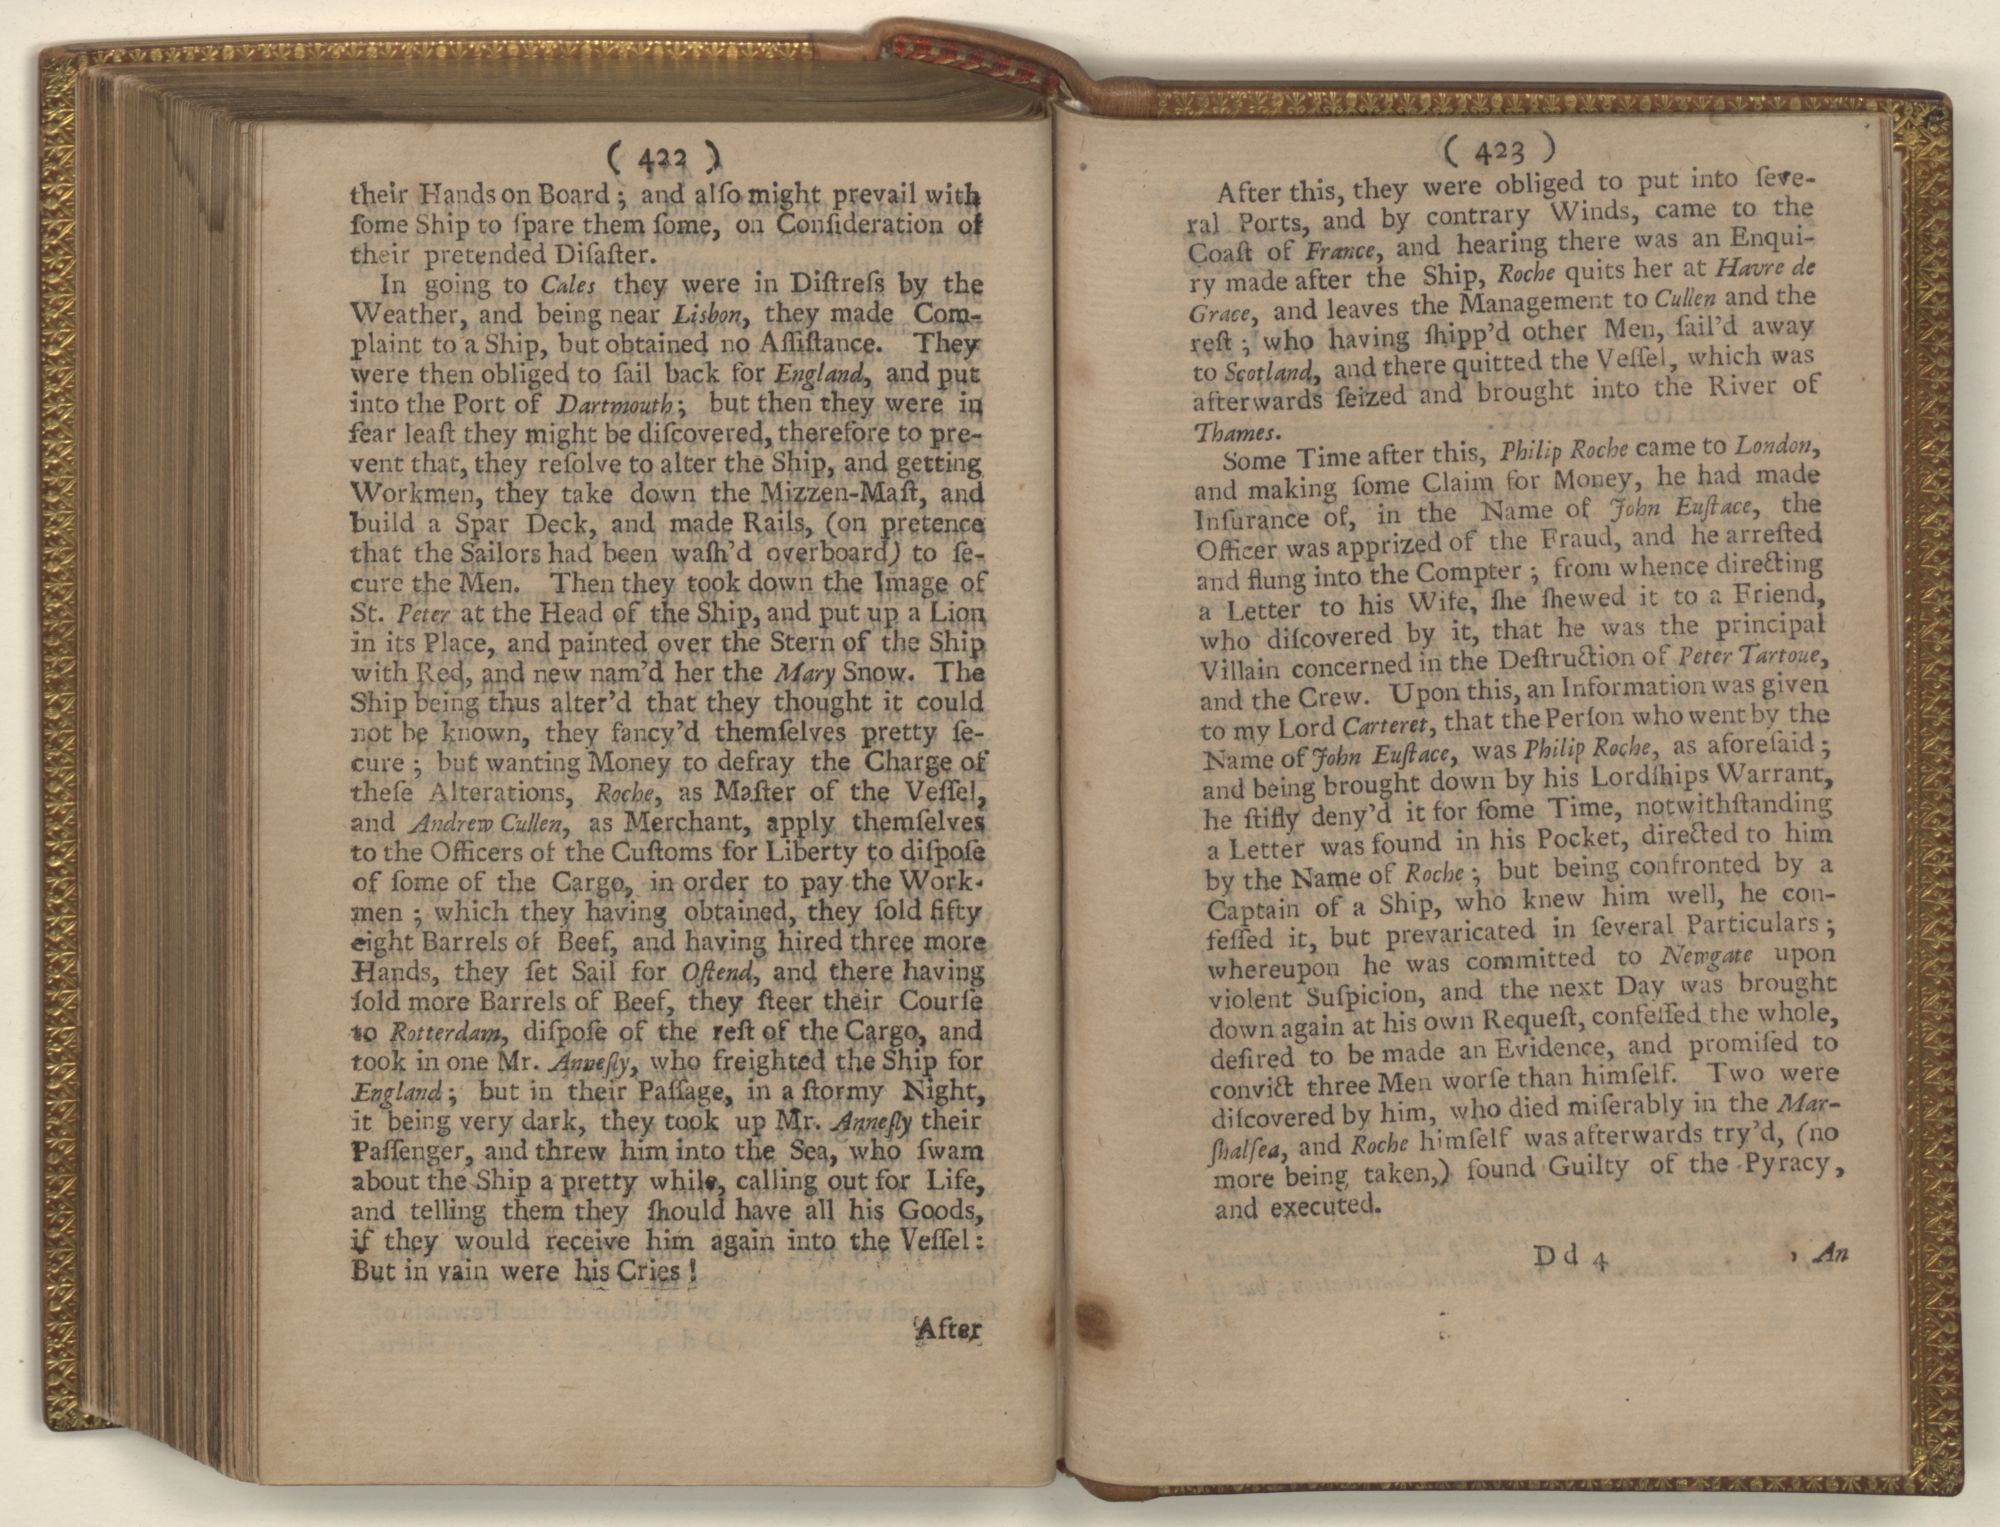 ( 422 )
their Hands on Board; and alſo might prevail with
ſome Ship to ſpare them ſome, on Conſideration of
their pretended Diſaſter.
In going to Cales they were in Diſtreſs by the
Weather, and being near Lisbon, they made Com-
plaint to a Ship, but obtained no Aſſiſtance. They
were then obliged to ſail back for England, and put
into the Port of Dartmouth; but then they were in
fear leaſt they might be diſcovered, therefore to pre-
vent that, they reſolve to alter the Ship, and getting
Workmen, they take down the Mizzen-Maſt, and
build a Spar Deck, and made Rails, (on pretence
that the Sailors had been waſh'd overboard) to ſe-
cure the Men. Then they took down the Image of
St. Peter at the Head of the Ship, and put up a Lion
in its Place, and painted over the Stern of the Ship
with Red, and new nam'd her the Mary Snow. The
Ship being thus alter'd that they thought it could
not be known, they fancy'd themſelves pretty ſe-
cure; but wanting Money to defray the Charge of
theſe Alterations, Roche, as Maſter of the Veſſel,
and Andrew Cullen, as Merchant, apply themſelves
to the Officers of the Cuſtoms for Liberty to diſpoſe
of ſome of the Cargo, in order to pay the Work-
men; which they having obtained, they ſold fifty
eight Barrels of Beef, and having hired three more
Hands, they ſet Sail for Oſtend, and there having
ſold more Barrels of Beef, they ſteer their Courſe
to Rotterdam, diſpoſe of the reſt of the Cargo, and
took in one Mr. Anneſly, who freighted the Ship for
England; but in their Paſſage, in a ſtormy Night,
it being very dark, they took up Mr. Anneſly their
Paſſenger, and threw him into the Sea, who ſwam
about the Ship a pretty while, calling out for Life,
and telling them they ſhould have all his Goods,
if they would receive him again into the Veſſel:
But in vain were his Cries!
After
( 423 )
After this, they were obliged to put into ſeve-
ral Ports, and by contrary Winds, came to the
Coaſt of France, and hearing there was an Enqui-
ry made after the Ship, Roche quits her at Havre de
Grace, and leaves the Management to Cullen and the
reſt; who having ſhipp'd other Men, ſail'd away
to Scotland, and there quitted the Veſſel, which was
afterwards ſeized and brought into the River of
Thames.
Some Time after this, Philip Roche came to London,
and making ſome Claim for Money, he had made
Inſurance of, in the Name of John Euſtace, the
Officer was apprized of the Fraud, and he arreſted
and flung into the Compter; from whence directing
a Letter to his Wife, ſhe ſhewed it to a Friend,
who diſcovered by it, that he was the principal
Villain concerned in the Deſtruction of Peter Tartoue,
and the Crew. Upon this, an Information was given
to my Lord Carteret, that the Perſon who went by the
Name of John Euſtace, was Philip Roche, as aforeſaid;
and being brought down by his Lordſhips Warrant,
he ſtifly deny'd it for ſome Time, notwithſtanding
a Letter was found in his Pocket, directed to him
by the Name of Roche; but being confronted by a
Captain of a Ship, who knew him well, he con-
feſſed it, but prevaricated in ſeveral Particulars;
whereupon he was committed to Newgate upon
violent Suſpicion, and the next Day was brought
down again at his own Requeſt, confeſſed the whole,
deſired to be made an Evidence, and promiſed to
convict three Men worſe than himſelf. Two were
diſcovered by him, who died miſerably in the Mar-
ſhalſea, and Roche himſelf was afterwards try'd, (no
more being taken,) found Guilty of the Pyracy,
and executed.
D d 4 An